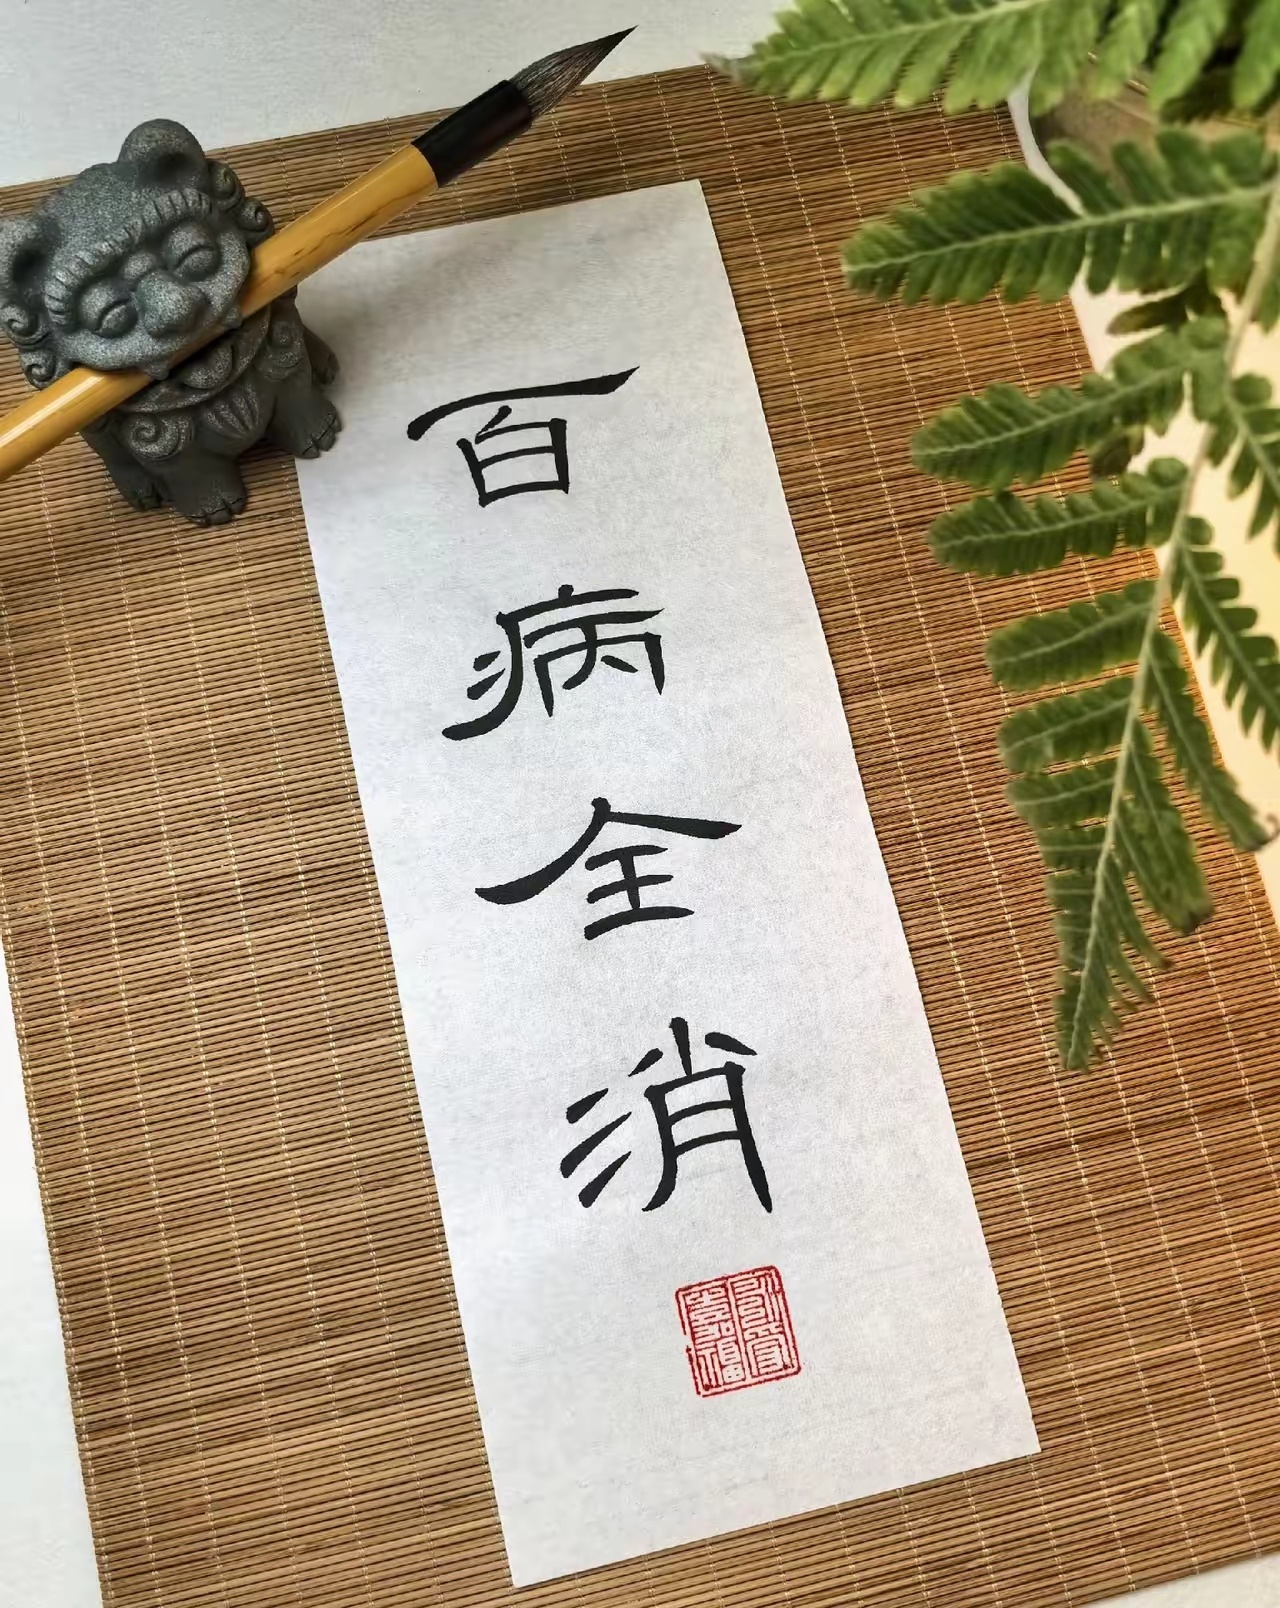 百病全消